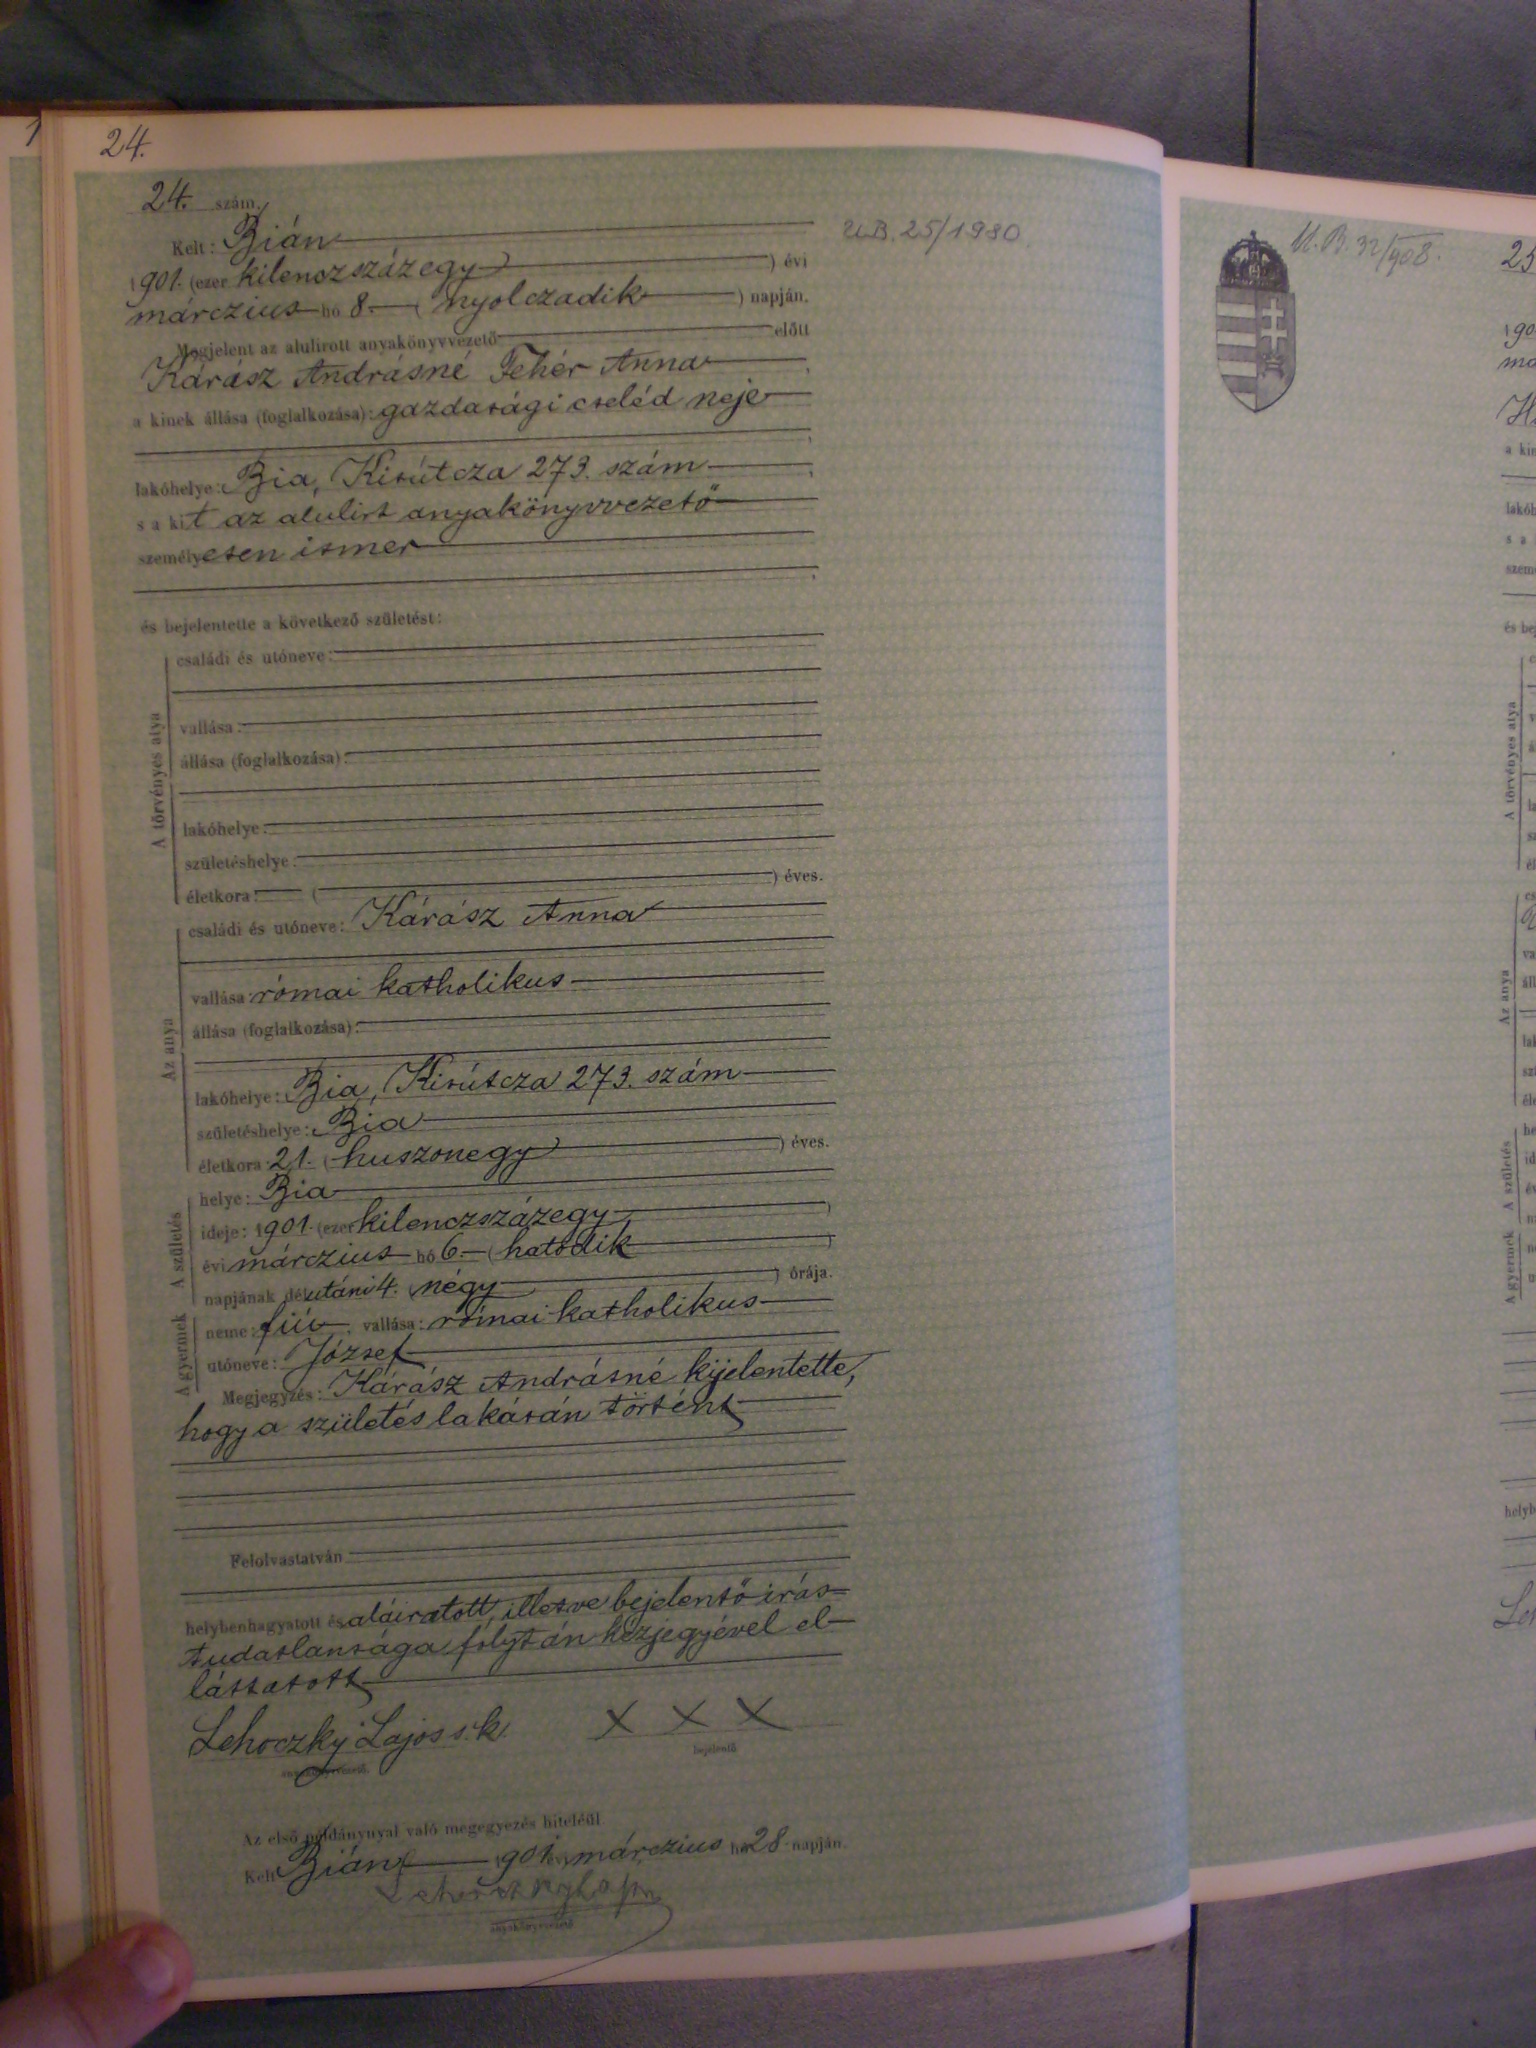 24.
24. szám.
U.B. 25/1980
Kelt: Bián
1901. (ezer kilenczszázegy) évi
márczius hó 8. (nyolczadik) napján.
Megjelent az alulirott anyakönyvvezető előtt
Kárász Andrásné Fehér Anna
a kinek állása (foglalkozása): gazdasági cseléd neje
lakóhelye: Bia, Kisútcza 273. szám
s a kit az alulirt anyakönyvvezető
személyesen ismer
és bejelentette a következő születést:
A törvényes atya
családi és utóneve:
vallása:
állása (foglalkozása):
lakóhelye:
születéshelye:
életkora: ( ) éves.
Az anya
családi és utóneve: Kárász Anna
vallása: római katholikus
állása (foglalkozása):
lakóhelye: Bia, Kisútcza 273. szám
születéshelye: Bia
életkora: 21. (huszonegy) éves.
A születés
helye: Bia
ideje: 1901. (ezer kilenczszázegy)
évi márczius hó 6. (hatodik)
napjának délutáni 4. (négy) órája.
A gyermek
neme: fiú, vallása: római katholikus
utóneve: József
Megjegyzés: Kárász Andrásné kijelentette,
hogy a születés lakásán történt
Felolvastatván
helybenhagyatott és aláiratott, illetve bejelentő irás=
tudatlansága folytán kézjegyével el-
láttatott
Lehoczky Lajos s.k. X X X
anyakönyvvezető. bejelentő
Az első példánynyal való megegyezés hiteléül
Kelt Bián, 1901. évi márczius hó 28. napján.
Lehoczky Lajos
anyakönyvvezető
U.B. 32/908.
25
190
lakóh
s a
szem
és bej
A törvényes atya
Az anya
A születés
A gyermek
helyb